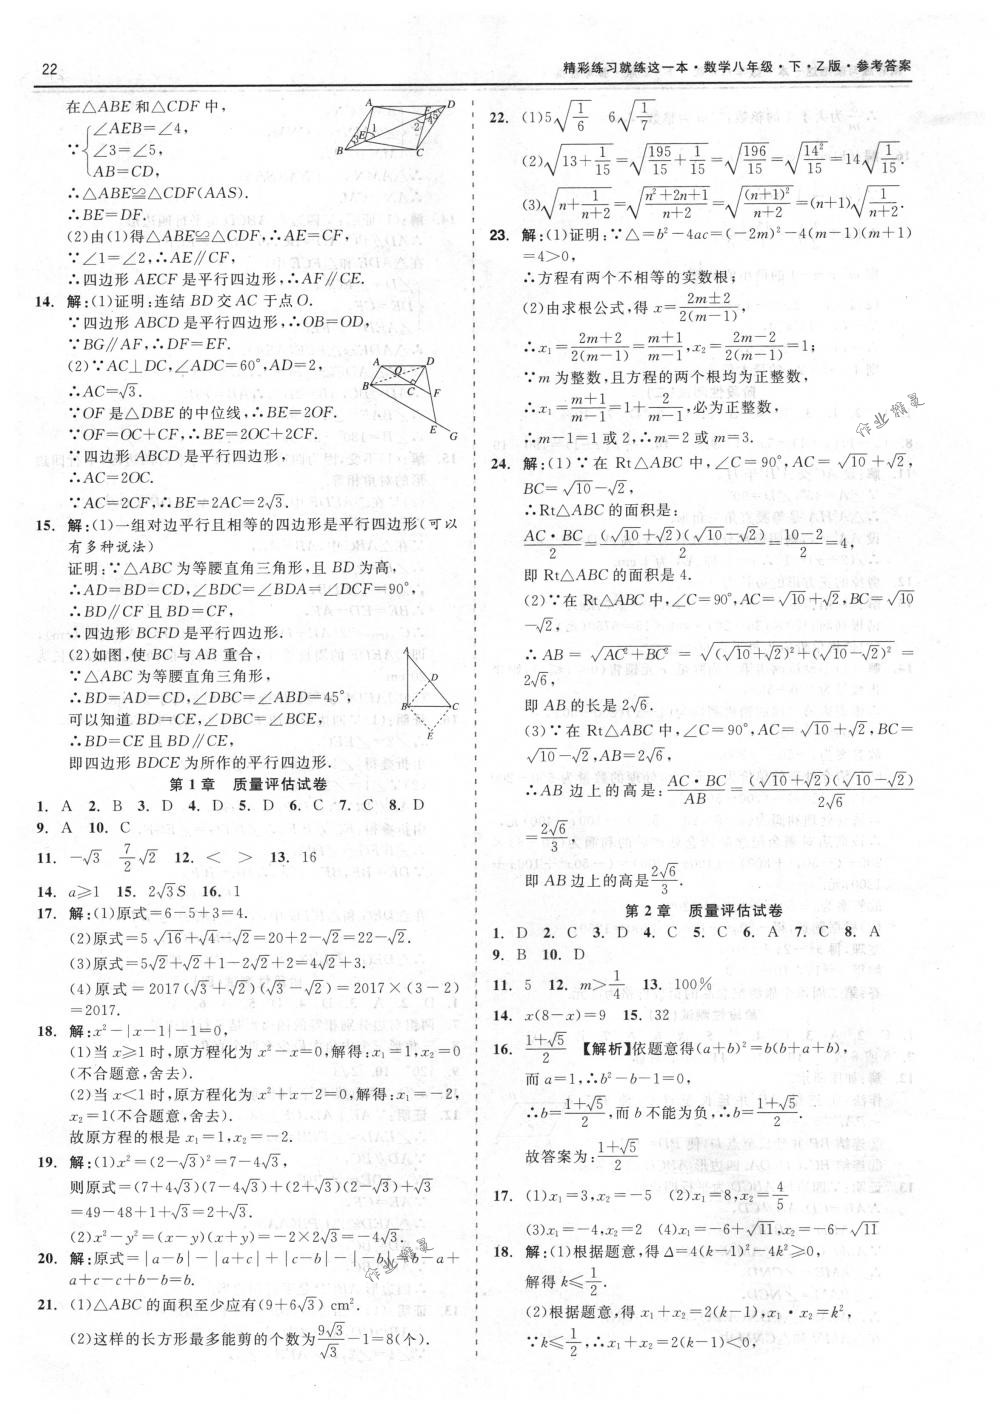 22
精彩练习就练这一本·数学八年级·下·Z版·参考答案
在△ABE和△CDF中，
∵{∠AEB=∠4，
∠3=∠5，
AB=CD，
∴△ABE≌△CDF(AAS).
∴BE=DF.
(2)由(1)得△ABE≌△CDF，∴AE=CF，
∵∠1=∠2，∴AE∥CF，
∴四边形AECF是平行四边形，∴AF∥CE.
14. 解:(1)证明:连结BD交AC于点O.
∵四边形ABCD是平行四边形，∴OB=OD，
∵BG∥AF，∴DF=EF.
(2)∵AC⊥DC，∠ADC=60°，AD=2，
∴AC=√3.
∵OF是△DBE的中位线，∴BE=2OF.
∵OF=OC+CF，∴BE=2OC+2CF.
∵四边形ABCD是平行四边形，
∴AC=2OC.
∵AC=2CF，∴BE=2AC=2√3.
15. 解:(1)一组对边平行且相等的四边形是平行四边形(可以
有多种说法)
证明:∵△ABC为等腰直角三角形，且BD为高，
∴AD=BD=CD，∠BDC=∠BDA=∠DCF=90°，
∴BD∥CF且BD=CF，
∴四边形BCFD是平行四边形.
(2)如图，使BC与AB重合，
∵△ABC为等腰直角三角形，
∴BD=AD=CD，∠DBC=∠ABD=45°，
可以知道BD=CE，∠DBC=∠BCE，
∴BD=CE且BD∥CE，
即四边形BDCE为所作的平行四边形.
第1章 质量评估试卷
1. A 2. B 3. D 4. D 5. D 6. C 7. C 8. D
9. A 10. C
11. −√3 7/2 √2 12. < > 13. 16
14. a≥1 15. 2√3S 16. 1
17. 解:(1)原式=6−5+3=4.
(2)原式=5√16+√4−√2=20+2−√2=22−√2.
(3)原式=5√2+√2+1−2√2+2=4√2+3.
(4)原式=2017(√3+√2)(√3−√2)=2017×(3−2)
=2017.
18. 解:x²−|x−1|−1=0，
(1)当x≥1时，原方程化为x²−x=0，解得:x₁=1，x₂=0
(不合题意，舍去).
(2)当x<1时，原方程化为x²+x−2=0，解得:x₁=−2，
x₂=1(不合题意，舍去).
故原方程的根是x₁=1，x₂=−2.
19. 解:(1)x²=(2−√3)²=7−4√3，
则原式=(7+4√3)(7−4√3)+(2+√3)(2−√3)+√3
=49−48+1+√3=2+√3.
(2)x²−y²=(x−y)(x+y)=−2×2√3=−4√3.
20. 解:原式=|a−b|−|a+c|+|c−b|−|−b|=b−a+
a+c−c+b−b=b.
21. (1)△ABC的面积至少应有(9+6√3) cm².
(2)这样的长方形最多能剪的个数为9√3/√3−1=8(个).
22. (1)5√(1/6) 6√(1/7)
(2)√(13+1/15)=√(195/15+1/15)=√(196/15)=√(14²/15)=14√(1/15).
(3)√(n+1/(n+2))=√((n²+2n+1)/(n+2))=√((n+1)²/(n+2))=(n+1)√(1/(n+2)).
23. 解:(1)证明:∵△=b²−4ac=(−2m)²−4(m−1)(m+1)
=4>0，
∴方程有两个不相等的实数根;
(2)由求根公式，得x=(2m±2)/(2(m−1))，
∴x₁=(2m+2)/(2(m−1))=(m+1)/(m−1)，x₂=(2m−2)/(2(m−1))=1;
∵m为整数，且方程的两个根均为正整数，
∴x₁=(m+1)/(m−1)=1+2/(m−1)，必为正整数，
∴m−1=1或2，∴m=2或m=3.
24. 解:(1)∵在Rt△ABC中，∠C=90°，AC=√10+√2，
BC=√10−√2，
∴Rt△ABC的面积是:
AC·BC/2=(√10+√2)(√10−√2)/2=(10−2)/2=4，
即Rt△ABC的面积是4.
(2)∵在Rt△ABC中，∠C=90°，AC=√10+√2，BC=√10
−√2，
∴AB=√(AC²+BC²)=√((√10+√2)²+(√10−√2)²)=
2√6，
即AB的长是2√6.
(3)∵在Rt△ABC中，∠C=90°，AC=√10+√2，BC=
√10−√2，AB=2√6，
∴AB边上的高是:AC·BC/AB=(√10+√2)(√10−√2)/2√6
=2√6/3，
即AB边上的高是2√6/3.
第2章 质量评估试卷
1. D 2. C 3. D 4. C 5. C 6. A 7. C 8. A
9. B 10. D
11. 5 12. m>1/4 13. 100%
14. x(8−x)=9 15. 32
16. (1+√5)/2 【解析】依题意得(a+b)²=b(b+a+b)，
而a=1，∴b²−b−1=0，
∴b=(1±√5)/2，而b不能为负，∴b=(1+√5)/2.
故答案为:(1+√5)/2
17. (1)x₁=3，x₂=−5 (2)x₁=8，x₂=4/5
(3)x₁=−4，x₂=2 (4)x₁=−6+√11，x₂=−6−√11
18. 解:(1)根据题意，得Δ=4(k−1)²−4k²≥0，
解得k≤1/2.
(2)根据题意，得x₁+x₂=2(k−1)，x₁·x₂=k²，
∵k≤1/2，∴x₁+x₂=2(k−1)<0，